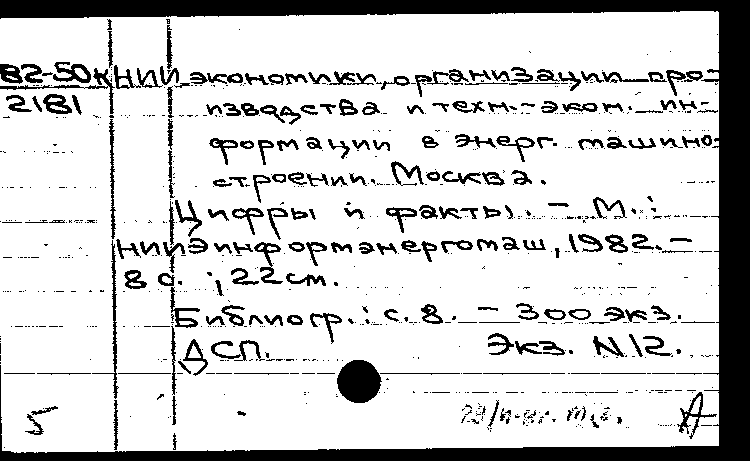 82-50к НИИ экономики, организации про-
2181 изводства и техн.-эком. ин-
формации в энерг. машино-
строении. Москва.
Цифры и факты. - М.:
НИИЭинформэнергомаш, 1982. -
8 с. ; 22 см.
Библиогр.: с. 8. - 300 экз.
ДСП. Экз. N 12.
5 А